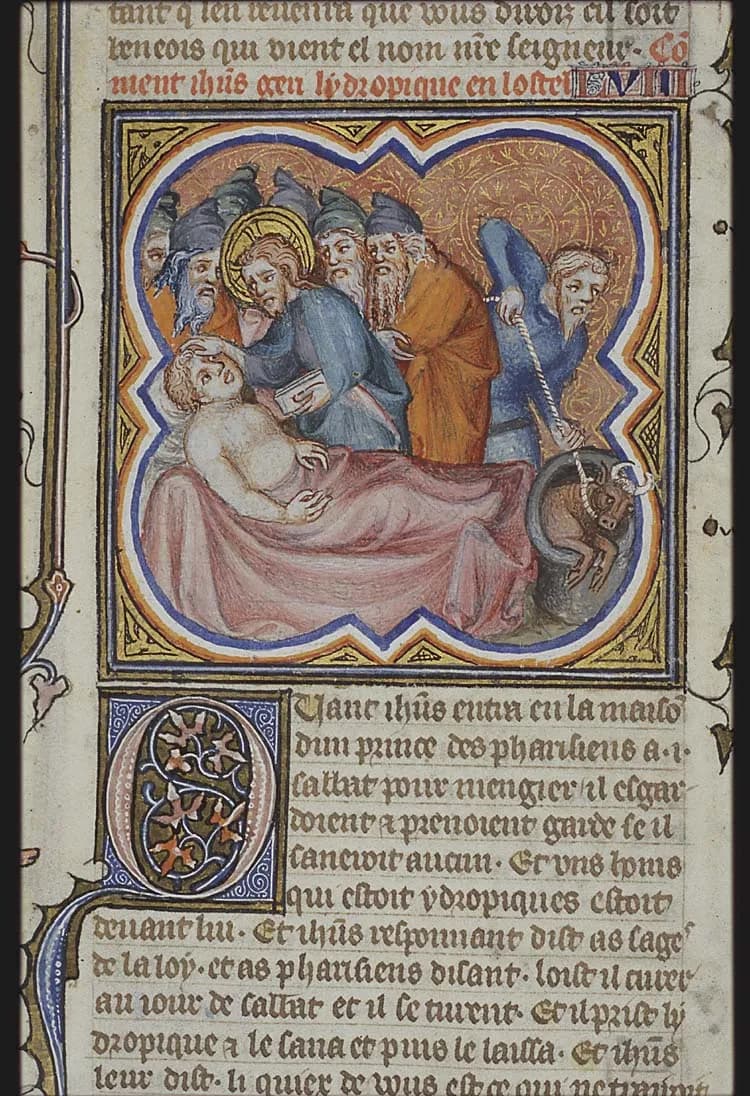 tant q len reuenra que vous diroiz cil soit
beneois qui vient el nom nr̄e seigneur. Cō
ment ihūs gari lydropique en lostel LVIII
Quant ihūs entra en la maisō
dun prince des pharisiens a .i.
sabbat pour mengier il esgar
doient ⁊ prenoient garde se il
saneroit aucun. Et vns homs
qui estoit ydropiques estoit
deuant lui. Et ihūs respounant dist as sages
de la loy. et as pharisiens disant. loist il curer
au iour de sabbat et il se turent. Et il prist ly
dropique ⁊ le sana et puis le laissa. Et ihūs
leur dist. li quiex de vous est ce qui ne